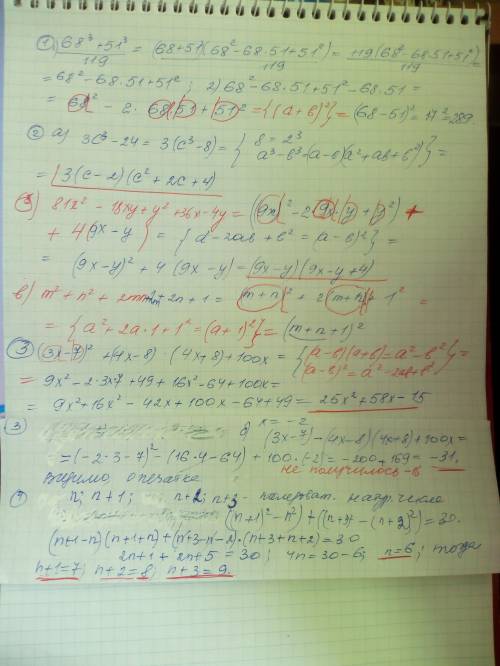 1) 68³ + 51³ / 119 = (68+51)(68² - 68·51 + 51²) / 119 = 119(68² - 68·51 + 51²) / 119
= 68² - 68·51 + 51² ; 2) 68² - 68·51 + 51² - 68·51 =
= 68² - 2·68·51 + 51² = {(a+b)²} = (68-51)² = 17² = 289
2) а) 3c³ - 24 = 3(c³ - 8) = { 8 = 2³ a³ - b³ = (a-b)(a² + ab + b²) } =
= 3(c-2)(c² + 2c + 4)
81x² - 18xy + y² + 36x - 4y = ((9x)² - 2·9x·y + y²) +
+ 4(9x - y) = {a² - 2ab + b² = (a-b)²} =
= (9x-y)² + 4(9x-y) = (9x-y)(9x-y+4)
в) m² + n² + 2mn + 2n + 1 = (m+n)² + 2(m+n) + 1² =
= {a² + 2a·1 + 1² = (a+1)²} = (m+n+1)²
3) (3x-7)² + (4x-8)·(4x+8) + 100x = { (a-b)(a+b) = a² - b² (a-b)² = a² - 2ab + b² } =
= 9x² - 2·3x7 + 49 + 16x² - 64 + 100x =
= 9x² + 16x² - 42x + 100x - 64 + 49 = 25x² + 58x - 15
3) б) x = -2
(3x-7) - (4x-8)(4x+8) + 100x =
= (-2·3-7)² - (16·4-64) + 100·(-2) = -200 + 169 = -31,
не получилось -6
Видимо, опечатка
n; n+1; n+2; n+3 - последоват. натур. числа
((n+1)² - n²) + ((n+3)² - (n+2)²) = 30.
(n+1-n)(n+1+n) + (n+3-n-2)·(n+3+n+2) = 30
2n+1 + 2n+5 = 30; 4n = 30-6; n=6; тогда
n+1=7; n+2=8; n+3=9.